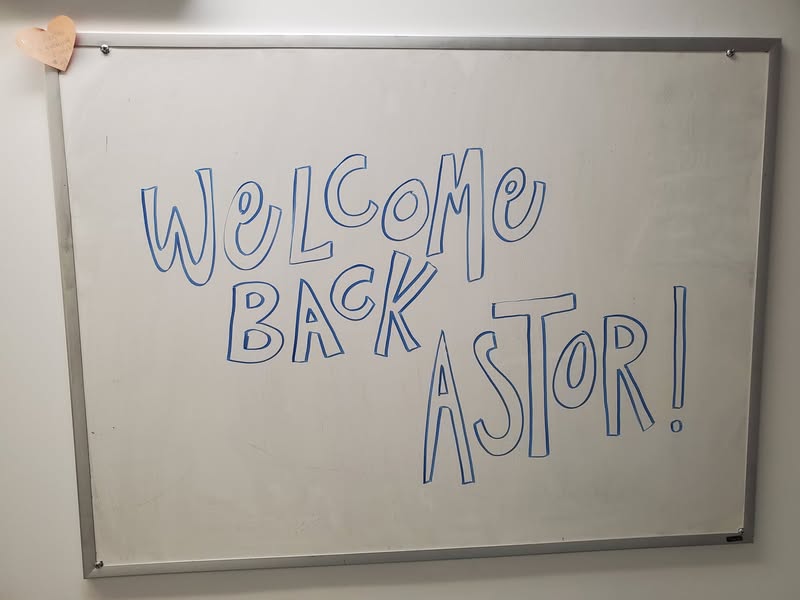 WeLCOMe
BACK
ASTOR!